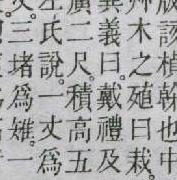 版該楨榦也中
艸木之殖曰栽
異義曰戴禮及
廣二尺積高五
左氏說一丈為
三堵為雉一